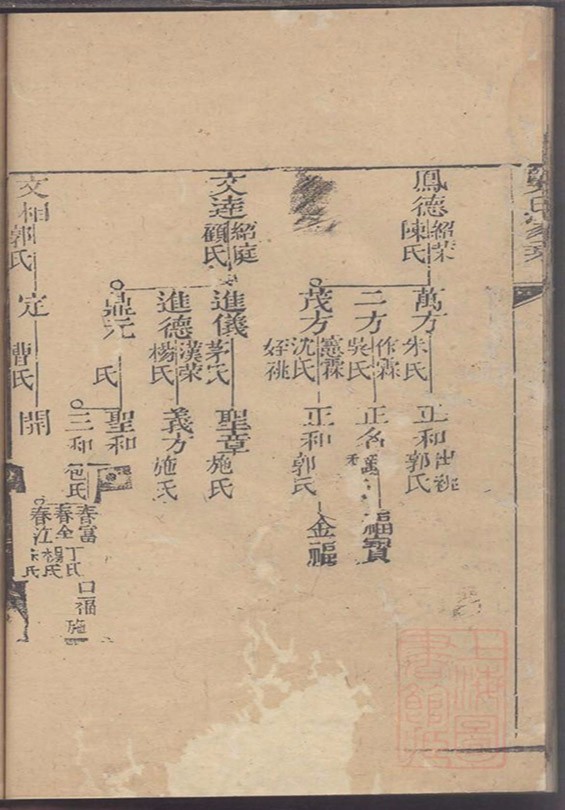 鳳德 紹榮 陳氏
萬方 朱氏
正和 出祧 郭氏
二方 作霖 吳氏
正名
福寶
茂方 蕙霖 沈氏 好祧
正和 郭氏
金福
文達 紹庭 顧氏
進儀 茅氏
聖章 施氏
進德 漢榮 楊氏
義方 施氏
鼎元 氏
聖和
三和 包氏
春富 丁氏
口福 施
春全 楊氏
春江 氏
文相 郭氏
定 曹氏
開
氏家
上海圖書館